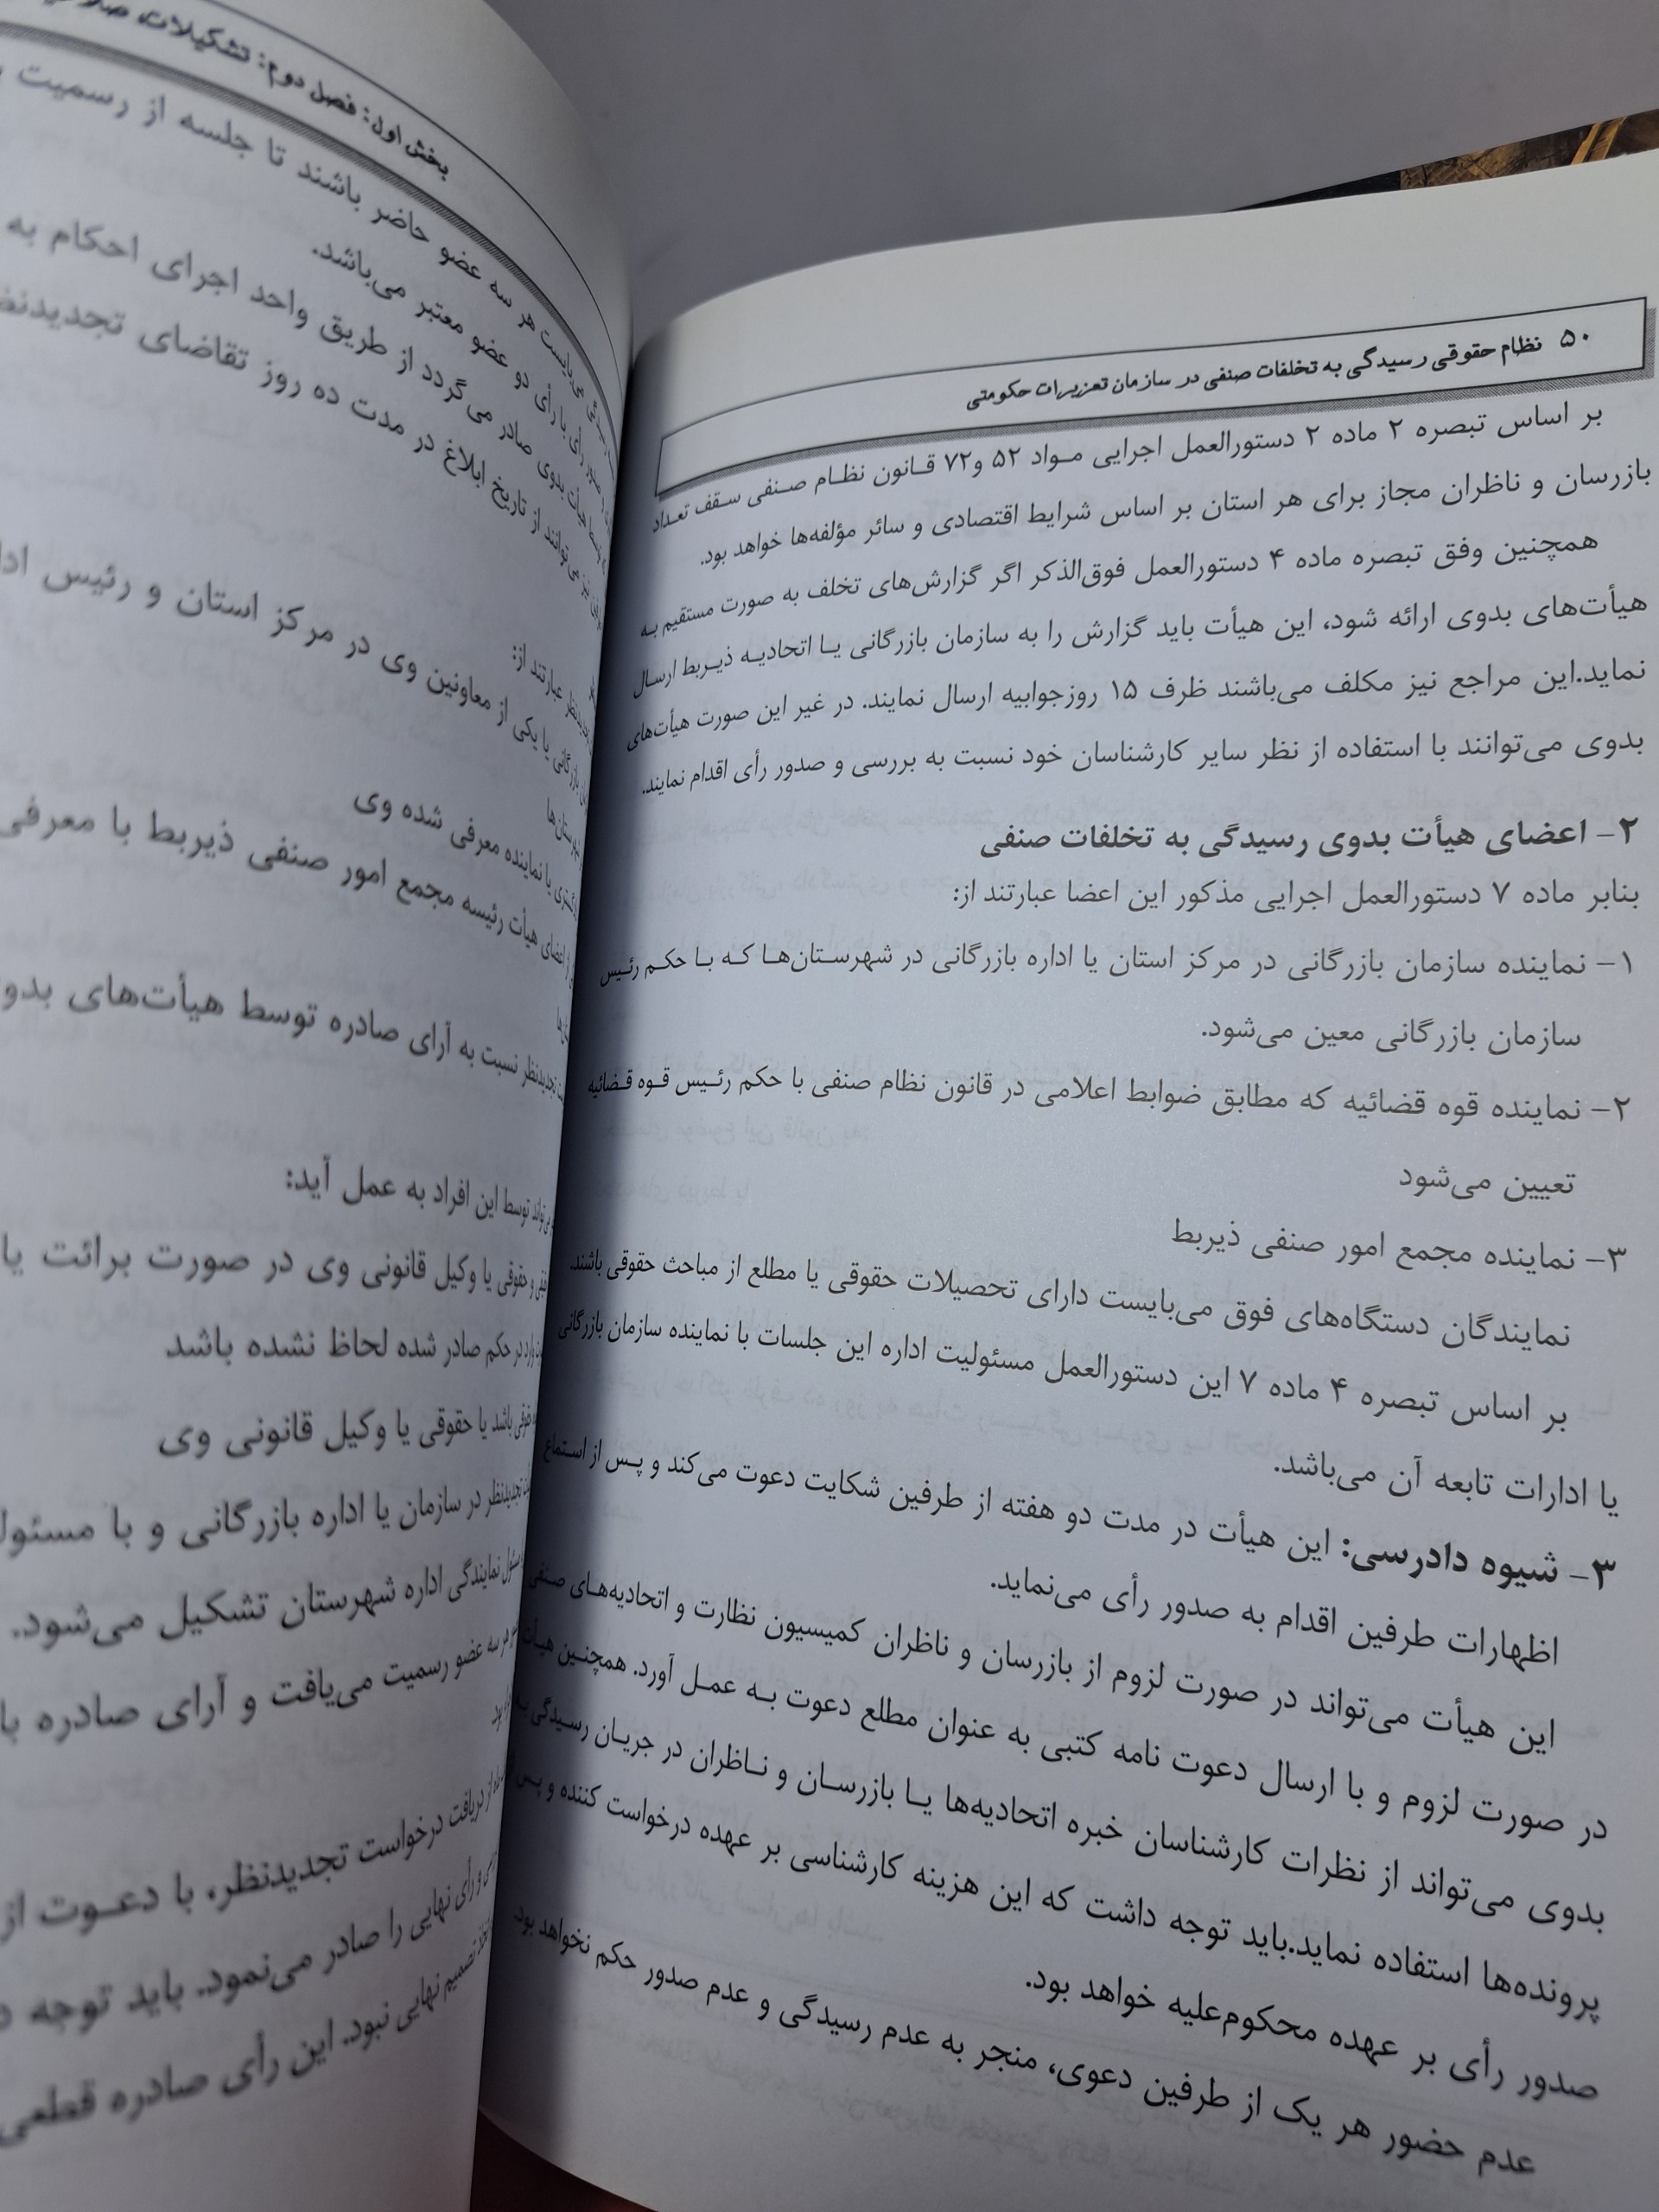 ۵۰ نظام حقوقی رسیدگی به تخلفات صنفی در سازمان تعزیرات حکومتی
بر اساس تبصره ۲ ماده ۲ دستورالعمل اجرایی مواد ۵۲ و۷۲ قانون نظام صنفی سقف تعداد
بازرسان و ناظران مجاز برای هر استان بر اساس شرایط اقتصادی و سائر مؤلفه‌ها خواهد بود.
همچنین وفق تبصره ماده ۴ دستورالعمل فوق‌الذکر اگر گزارش‌های تخلف به صورت مستقیم به
هیأت‌های بدوی ارائه شود، این هیأت باید گزارش را به سازمان بازرگانی یا اتحادیه ذیربط ارسال
نماید.این مراجع نیز مکلف می‌باشند ظرف ۱۵ روزجوابیه ارسال نمایند. در غیر این صورت هیأت‌های
بدوی می‌توانند با استفاده از نظر سایر کارشناسان خود نسبت به بررسی و صدور رأی اقدام نمایند.
۲- اعضای هیأت بدوی رسیدگی به تخلفات صنفی
بنابر ماده ۷ دستورالعمل اجرایی مذکور این اعضا عبارتند از:
۱- نماینده سازمان بازرگانی در مرکز استان یا اداره بازرگانی در شهرستان‌ها که با حکم رئیس
سازمان بازرگانی معین می‌شود.
۲- نماینده قوه قضائیه که مطابق ضوابط اعلامی در قانون نظام صنفی با حکم رئیس قوه قضائیه
تعیین می‌شود
۳- نماینده مجمع امور صنفی ذیربط
نمایندگان دستگاه‌های فوق می‌بایست دارای تحصیلات حقوقی یا مطلع از مباحث حقوقی باشند.
بر اساس تبصره ۴ ماده ۷ این دستورالعمل مسئولیت اداره این جلسات با نماینده سازمان بازرگانی
یا ادارات تابعه آن می‌باشد.
۳- شیوه دادرسی: این هیأت در مدت دو هفته از طرفین شکایت دعوت می‌کند و پس از استماع
اظهارات طرفین اقدام به صدور رأی می‌نماید.
این هیأت می‌تواند در صورت لزوم از بازرسان و ناظران کمیسیون نظارت و اتحادیه‌های صنفی
در صورت لزوم و با ارسال دعوت نامه کتبی به عنوان مطلع دعوت به عمل آورد. همچنین هیأت
بدوی می‌تواند از نظرات کارشناسان خبره اتحادیه‌ها یا بازرسان و ناظران در جریان رسیدگی به
پرونده‌ها استفاده نماید.باید توجه داشت که این هزینه کارشناسی بر عهده درخواست کننده و پس
صدور رأی بر عهده محکوم‌علیه خواهد بود.
عدم حضور هر یک از طرفین دعوی، منجر به عدم رسیدگی و عدم صدور حکم نخواهد بود.
بخش اول: فصل دوم: تشکیلات،
هر سه عضو حاضر باشند تا جلسه از رسمیت
رأی با رأی دو عضو معتبر می‌باشد.
هیأت بدوی صادر می‌گردد از طریق واحد اجرای احکام به
نیز می‌توانند از تاریخ ابلاغ در مدت ده روز تقاضای
عبارتند از:
بازرگانی یا یکی از معاونین وی در مرکز استان و رئیس
یا نماینده معرفی شده وی
اعضای هیأت رئیسه مجمع امور صنفی ذیربط با معرفی
تجدیدنظر نسبت به آرای صادره توسط هیأت‌های
توسط این افراد به عمل آید:
حقوقی یا وکیل قانونی وی در صورت برائت یا
در حکم صادر شده لحاظ نشده باشد
باشد یا حقوقی یا وکیل قانونی وی
تجدیدنظر در سازمان یا اداره بازرگانی و با
نمایندگی اداره شهرستان تشکیل می‌شود.
سه عضو رسمیت می‌یافت و آرای صادره
از دریافت درخواست تجدیدنظر، با دعوت از
و رأی نهایی را صادر می‌نمود. باید توجه
تصمیم نهایی نبود. این رأی صادره قطعی